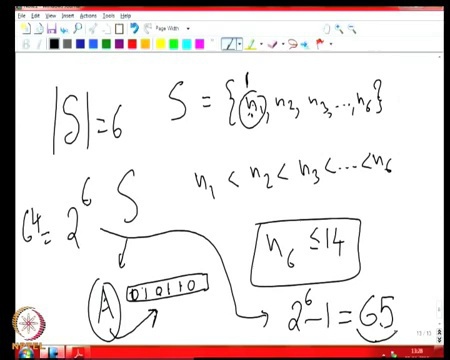 File Edit View Insert Actions Tools Help
Page Width
1
|S| = 6 S = {n₁, n₂, n₃, ..., n₆}
n₁ < n₂ < n₃ < ... < n₆
64 = 2⁶ S
n₆ ≤ 14
A 010110
2⁶ - 1 = 65
13:28